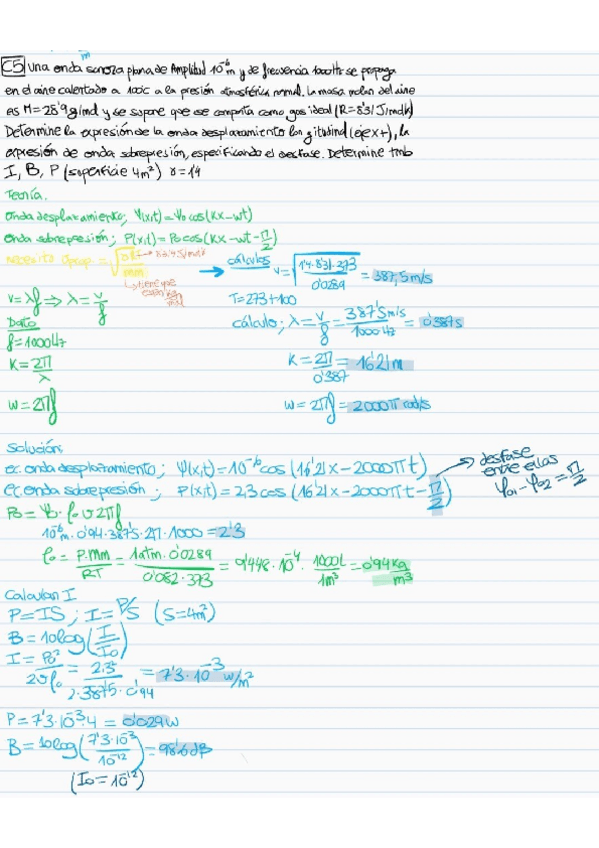 m
C5 Una onda sonora plana de Amplitud 10⁻⁶m y de frecuencia 1000Hz se propaga
en el aire calentado a 100ºC a la presión atmosférica normal. La masa molar del aire
es M=28'9g/mol y se supone que se comporta como gas ideal (R=8'31J/molK)
Determine la expresión de la onda desplazamiento longitudinal (eje x+), la
expresión de onda sobrepresión, especificando el desfase. Determine tmb
I, B, P (superficie 4m²) γ=1'4
Teoría.
Onda desplazamiento; Ψ(x,t)=Ψo cos(Kx-wt)
Onda sobrepresión; P(x,t)=Po cos(Kx-wt-π/2)
necesito
mm
tiene que
cálculos v=√(1'4·8'31·373/0'0289) = 387,5m/s
T=273+100
v=λf ⇒ λ=v/f
cálculo; λ=v/f=387'5m/s/1000Hz=0'387s
Dato
f=1000Hz
K=2π/λ
K=2π/0'387=16'21m
w=2πf
w=2πf=2000π rad/s
Solución;
ec. onda desplazamiento; Ψ(x,t)=10⁻⁶cos(16'21x-2000πt)
ec. onda sobrepresión; P(x,t)=2,3cos(16'21x-2000πt-π/2)
→ desfase
entre ellas
φ01-φ02=π/2
Po=Ψo·ρo v 2πf
10⁻⁶m·0'94·387'5·2π·1000=2'3
ρo=P·MM/RT=1atm·0'0289/0'082·373=9'448·10⁻⁴·1000L/1m³=0'94kg/m³
Calculan I
P=IS; I=P/S (S=4m²)
B=10log(I/Io)
I=Po²/2vρo=2.3²/2·387'5·0'94=7'3·10⁻³w/m²
P=7'3·10⁻³·4=0'029w
B=10log(7'3·10⁻³/10⁻¹²)=98'6dB
(Io=10⁻¹²)